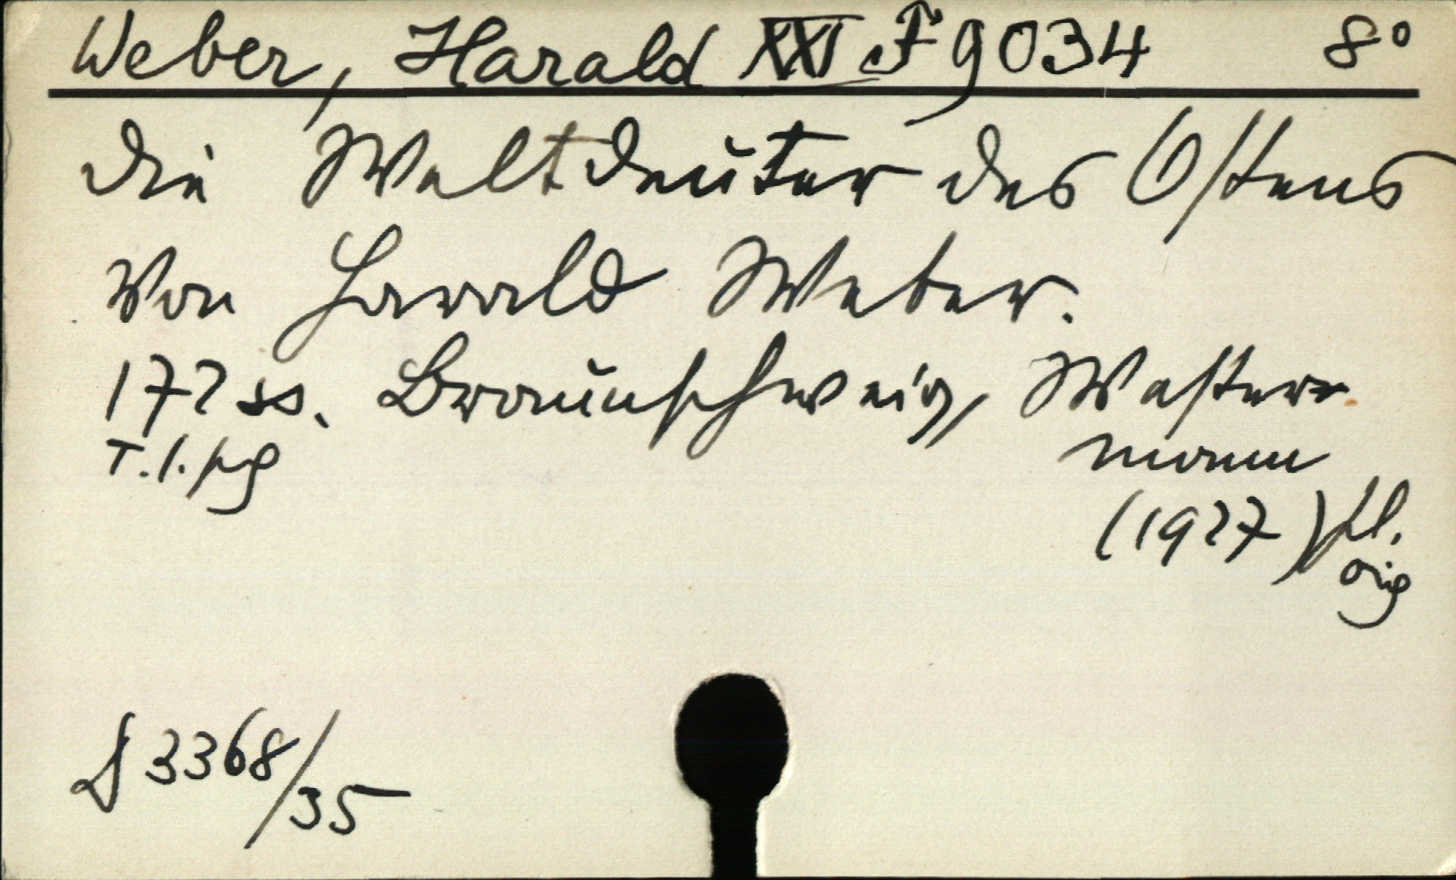 Weber, Harald XXI F 9034 8°
Die Weltdeuter des Ostens
Von Harald Weber.
172 ss. Braunschweig, Wester-
mann
T. 1. pg
(1927) pl.
orig
J 3368/35